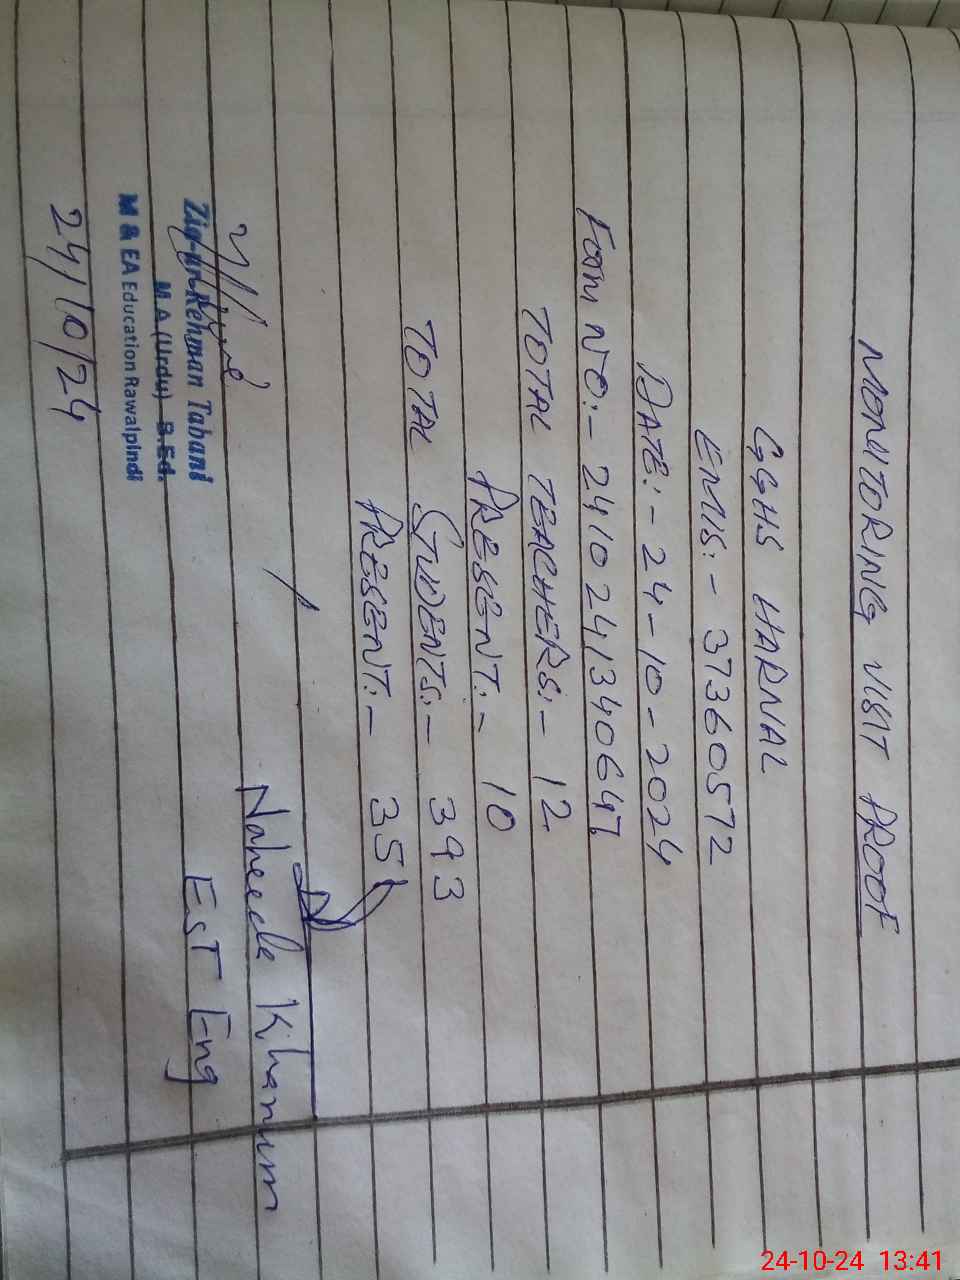 MONITORING VISIT PROOF
GGHS HARNAL
EMIS:- 37360572
DATE:- 24-10-2024
Form NO:- 241024134064
TOTAL TEACHERS:- 12
PRESENT:- 10
TOTAL STUDENTS:- 393
PRESENT:- 351
Naheede Khanum
EST Eng
Zia-ur-Rehman Tabani
M.A (Urdu) B.Ed.
M & EA Education Rawalpindi
24/10/24
24-10-24 13:41